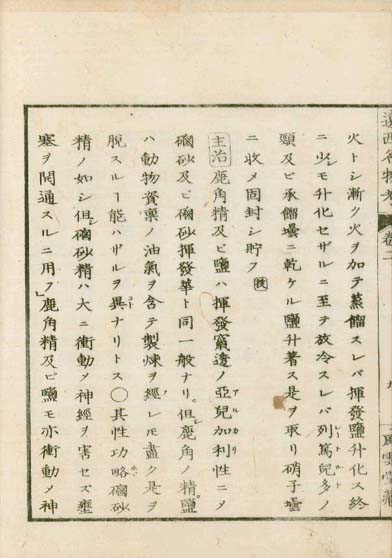 遠西名物考 巻二
火トシ漸ク火ヲ加テ蒸餾スレバ揮發鹽升化ス終
ニ少モ升化セザルニ至テ放冷スレバ列篤兒多ノ
頸及ビ承餾壜ニ乾ケル鹽升著ス是ヲ取リ硝子壜
ニ收メ固封シ貯フ
主治 鹿角精及ビ鹽ハ揮發竄透ノ亞兒加利性ニメ
磠砂及ビ磠砂揮發華ト同一般ナリ。但鹿角ノ精鹽
ハ動物資稟ノ油氣ヲ含テ製煉ヲ經レモ盡ク是ヲ
脱スルヿ能ハザルヲ異ナリトス〇其性功略磠砂
精ノ如シ但磠砂精ハ大ニ衝動メ神經ヲ害セズ壅
塞ヲ開通スルニ用フ」鹿角精及ビ鹽モ亦衝動メ神
風雲堂藏